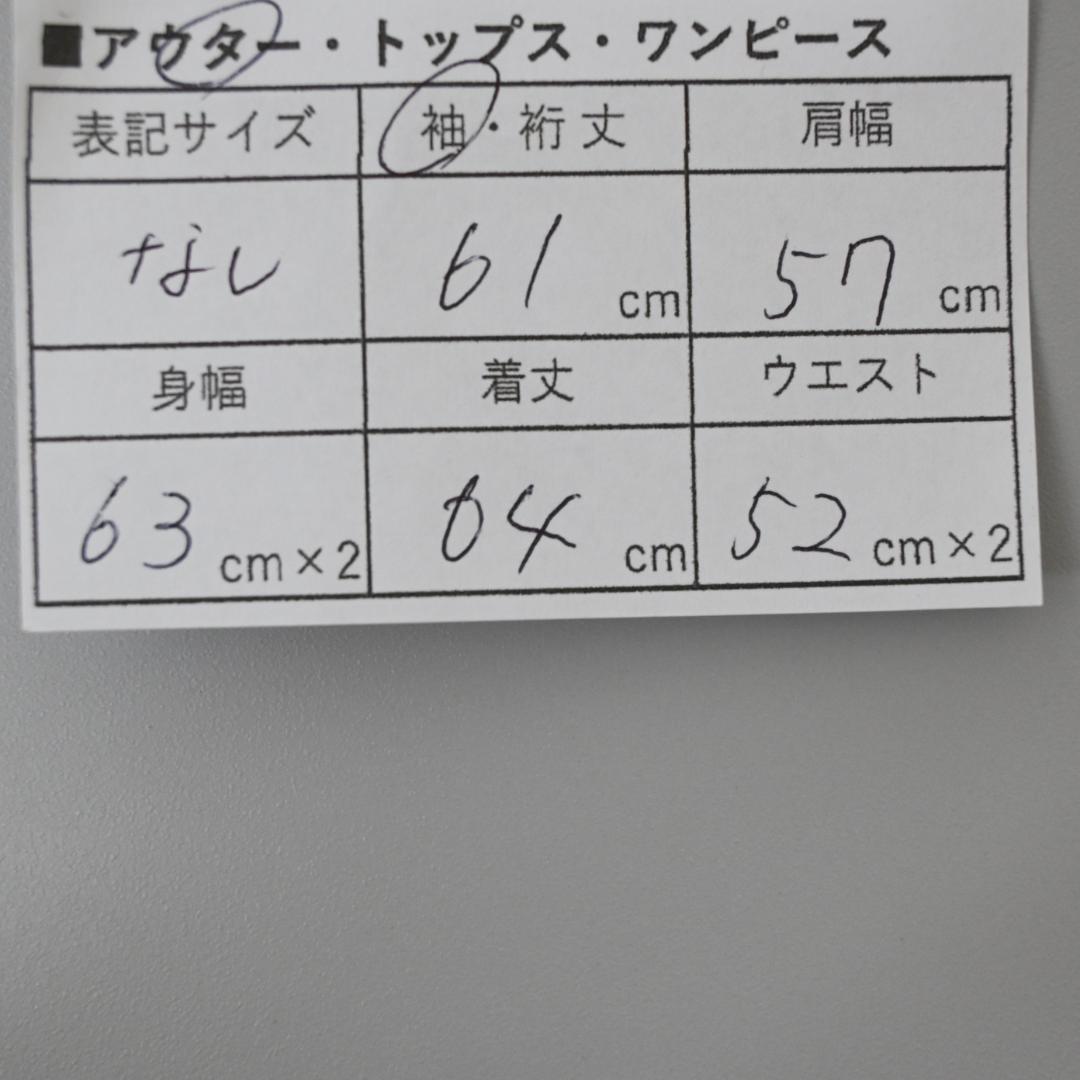 ■アウター・トップス・ワンピース
表記サイズ 袖・裄丈 肩幅
なし 61 cm 57 cm
身幅 着丈 ウエスト
63 cm×2 64 cm 52 cm×2